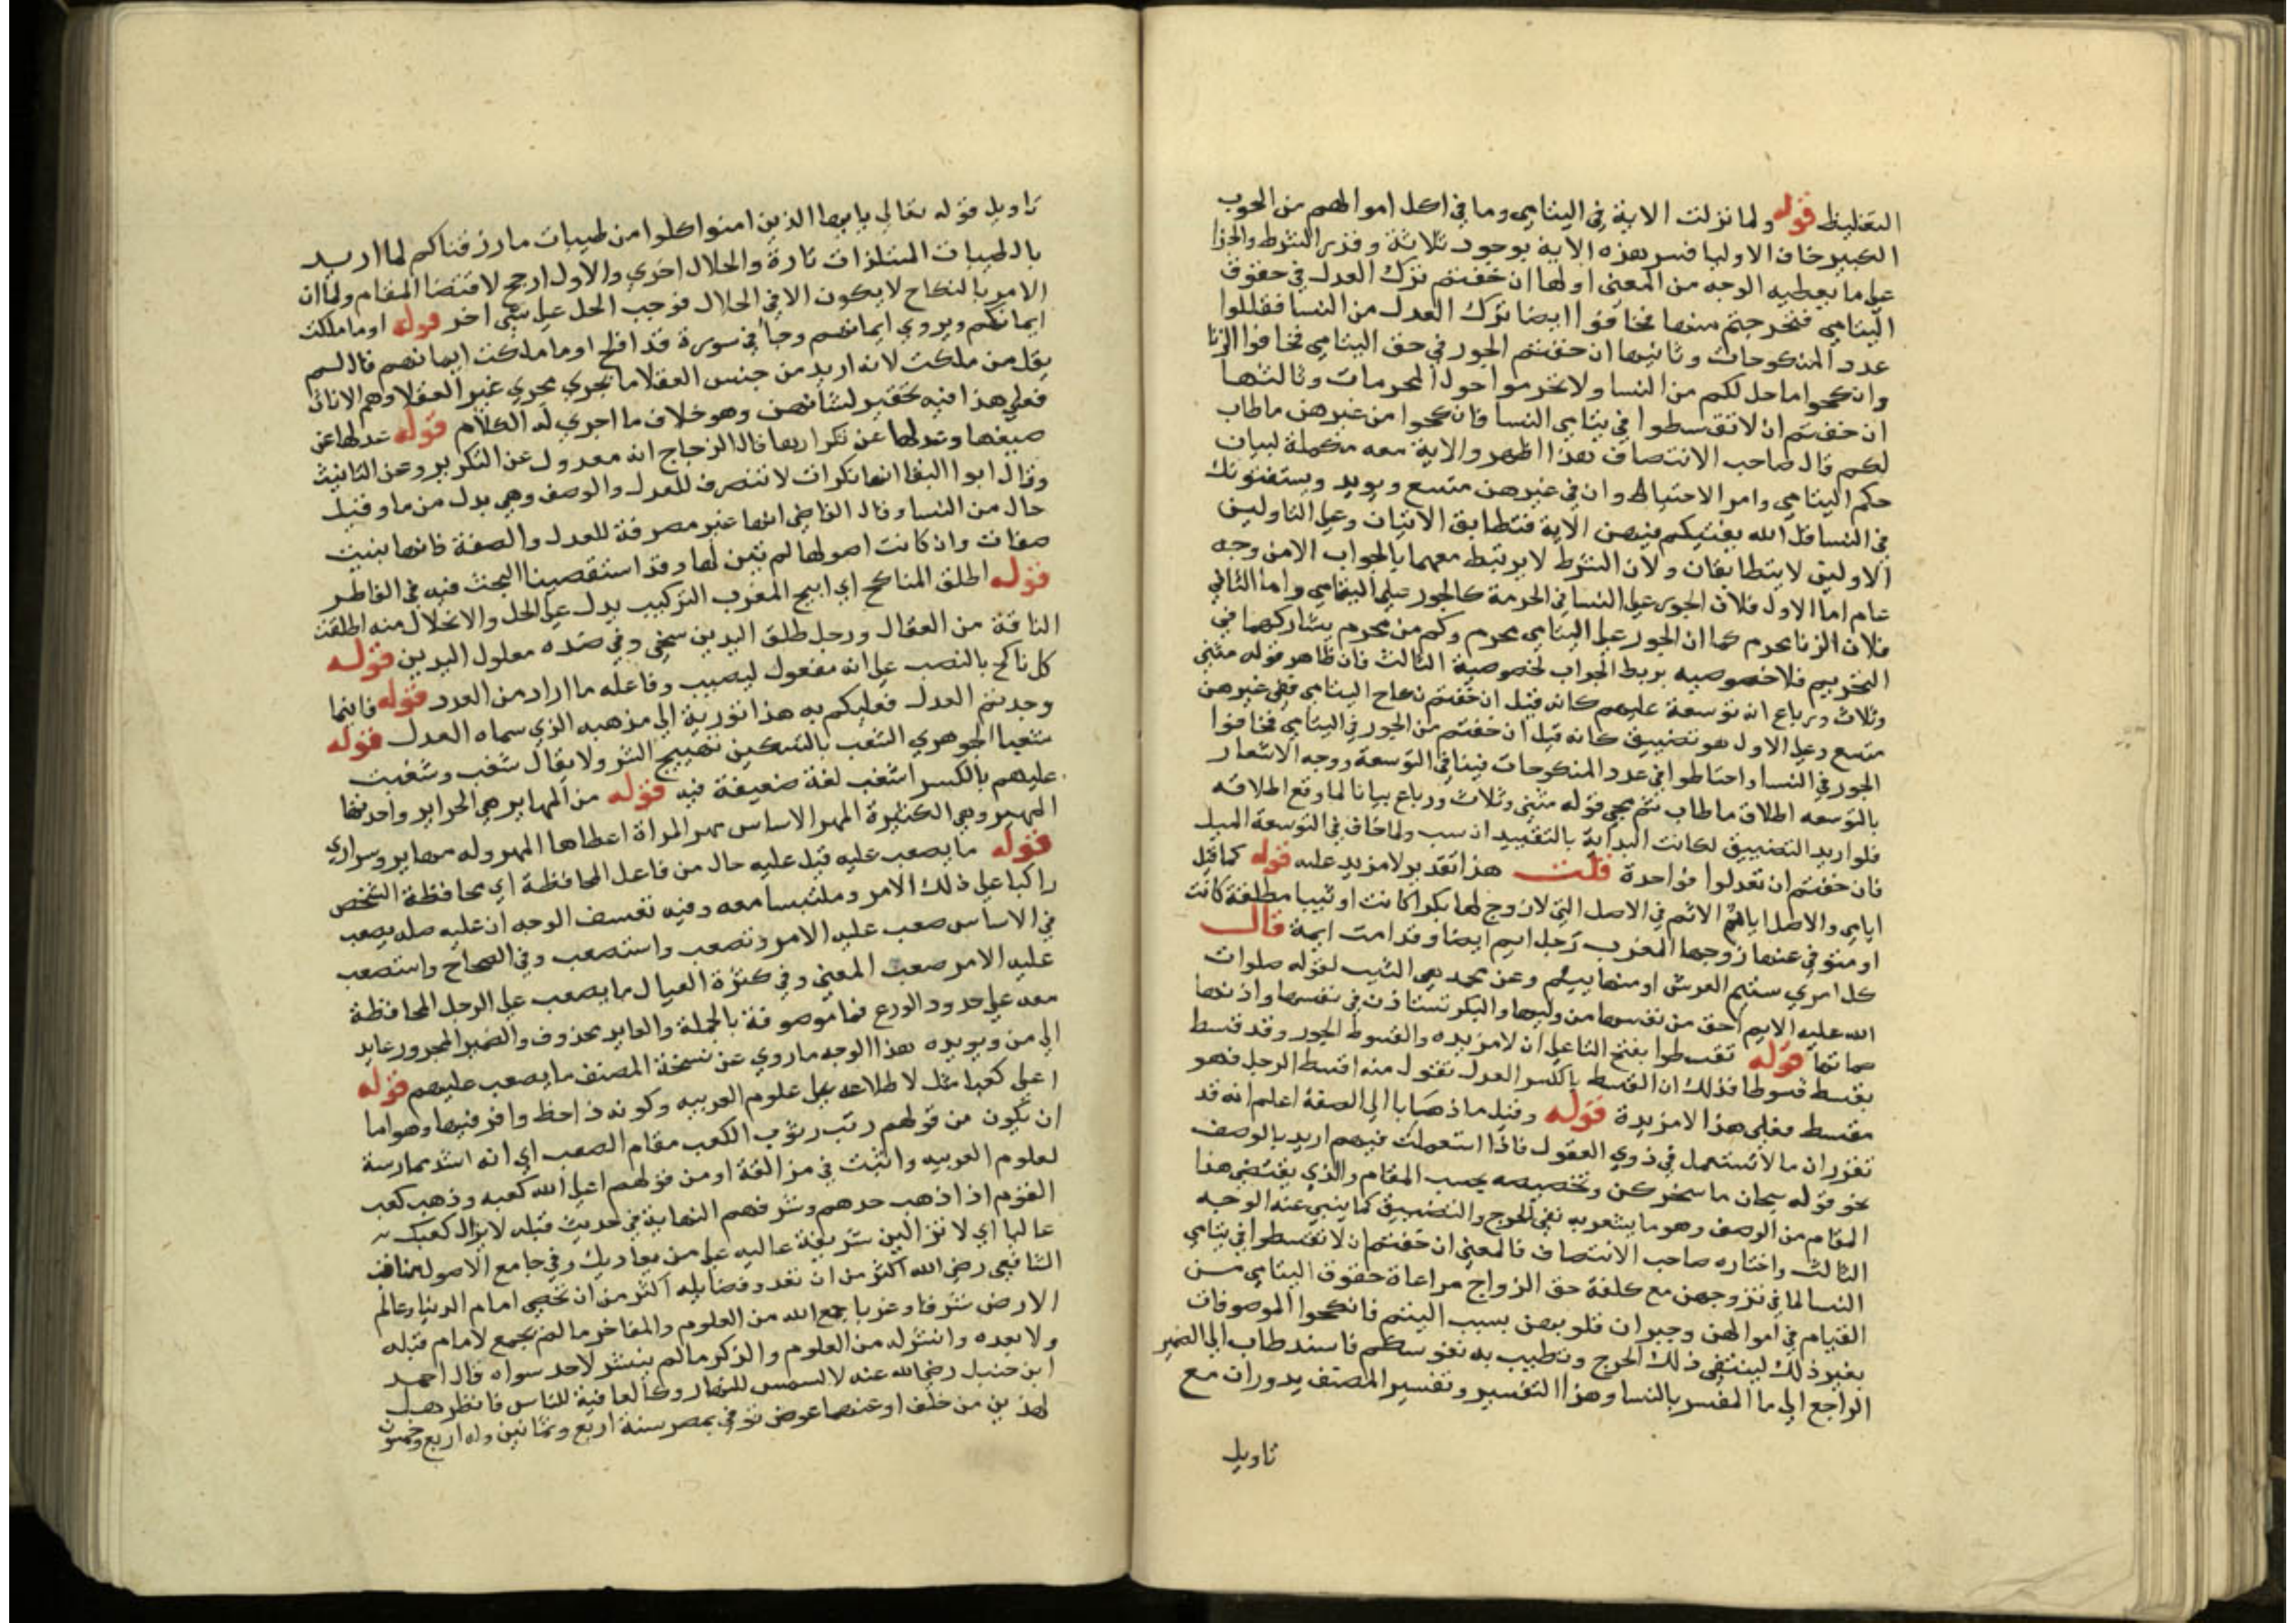 التغليظ قوله ولما نزلت الاية في اليتامي وما في اكل اموالهم من الحوب
الكبير خاف الاوليا فسر هذه الاية بوجوه ثلاثة وقدر الشرط والجزا
علي ما يعطيه الوجه من المعني اولها ان خفتم ترك العدل في حقوق
اليتامي فتحرجتم منها فخافوا ايضا ترك العدل من النسا فقللوا
عدد المنكوحات وثانيها ان خفتم الجور في حق اليتامي فخافوا الزنا
وانكحوا ما حل لكم من النسا ولا تحوموا حول المحرمات وثالثها
ان خفتم ان لا تقسطوا في يتامي النسا فانكحوا من غيرهن ماطاب
لكم قال صاحب الانتصاف هذا اظهر والاية معه مكملة لبيان
حكم اليتامي وامر الاحتياط وان في غيرهن متسع ويويد ويستفتونك
في النسا قل الله يفتيكم فيهن الاية فتطابق الايتان وعلي التاولين
الاولين لا يتطابقان ولان الشرط لا يرتبط معهما بالجواب الا من وجه
عام اما الاول فلان الجور علي النسا في الحرمة كالجور علي اليتامي واما الثاني
فلان الزنا محرم كما ان الجور علي اليتامي محرم وكم من محرم يشاركهما في
التحريم فلا خصوصيه بربط الجواب لخصوصية الثالث فان ظاهر قوله مثني
وثلاث ورباع انه توسعة عليهم كانه قيل ان خفتم نكاح اليتامي ففي غيرهن
متسع وعلي الاول هو تضييق كانه قيل ان خفتم من الجور في اليتامي فخافوا
الجور في النسا واحتاطوا في عدد المنكوحات فينافي التوسعة ووجه الاشعار
بالتوسعه اطلاق ماطاب ثم مجي قوله مثني وثلاث ورباع بيانا لما وقع اطلاقه
فلو اريد التضييق لكانت البداية بالتقييد انسب ولما خاف في التوسعة الميل
فان خفتم ان تعدلوا فواحدة قلت هذا تقدير لا مزيد عليه قوله كما قيل
ايامي والاصل ايايم الايم في الاصل التي لا زوج لها بكرا كانت او ثيبا مطلقة كانت
او متوفي عنها زوجها المغرب رجل ايم ايضا وقد امت ايمة قال
كل امري ستيم العرش او منها ييئم وعن محمد هي الثيب لقوله صلوات
الله عليه الايم احق من نفسها من وليها والبكر تستاذن في نفسها واذنها
صماتها قوله تقسطوا بفتح التا علي ان لا مزيده والقسوط الجور وقد قسط
يقسط قسوطا فذلك ان القسط بالكسر العدل تقول منه اقسط الرجل فهو
مقسط فعلي هذا لا مزيدة قوله وقيل ما ذهابا الي الصفة اعلم انه قد
تقرر ان ما لا تستعمل في ذوي العقول فاذا استعملت فيهم اريد بالوصف
نحو قوله سبحان ما سخركن وتخصيصه بحسب المقام والذي يقتضي هذا
المقام من الوصف وهو ما يشعر به نفي الحرج والتضييق كما ينبي عنه الوجه
الثالث واختاره صاحب الانتصاف فالمعني ان خفتم ان لا تقسطوا في يتامي
النسا لما في تزوجهن مع كلفة حق الزواج مراعاة حقوق اليتامي من
القيام في اموالهن وجبران قلوبهن بسبب اليتم فانكحوا الموصوفات
بغير ذلك لينتفي ذلك الحرج وتطيب به نفوسكم فاسند طاب الي الضمير
الراجع الي ما المفسر بالنسا وهذا التفسير وتفسير المصنف يدوران مع
تاويل
تاويل قوله تعالي يا ايها الذين امنوا كلوا من طيبات ما رزقناكم لما اريد
بالطيبات المستلذات تارة والحلال اخري والاول ارجح لاقتضا المقام ولما ان
الامر بالنكاح لا يكون الا في الحلال فوجب الحمل علي شي اخر قوله او ما ملكت
ايمانكم ويروي ايمانهم وجا في سورة قد افلح او ما ملكت ايمانهم قال لم
يقل من ملكت لانه اريد من جنس العقلا ما يجري مجري غير العقلا وهم الاناث
فعلي هذا فيه تحقير لشانهن وهو خلاف ما اجري له الكلام قوله عدلها عن
صيغها وعدلها عن تكرارها قال الزجاج انه معدول عن التكرير وعن التانيث
وقال ابوا البقا انها نكرات لا تنصرف للعدل والوصف وهي بدل من ما وقيل
حال من النسا وقال القاضي انها غير مصرفة للعدل والصفة فانها بنيت
صفات وان كانت اصولها لم تبن لها وقد استقصينا البحث فيه في الفاطر
قوله اطلق المناكح اي ابيح المغرب التركيب يدل علي الحل والانحلال منه اطلقت
الناقة من العقال ورجل طلق اليدين سخي وفي ضده مغلول اليدين قوله
كل ناكح بالنصب علي انه مفعول ليصيب وفاعله ما اراد من العدد قوله فاينما
وجدتم العدل فعليكم به هذا تورية الي مذهبه الذي سماه العدل قوله
شغبا الجوهري الشغب بالتسكين تهييج الشر ولا يقال شغب وشغبت
عليهم بالكسر اشغب لغة ضعيفة فيه قوله من المهاير هي الحراير واحدتها
المهيره وهي الكثيرة المهر الاساس مهر المراة اعطاها المهر وله مهاير وسراري
قوله ما يصعب عليه قيل عليه حال من فاعل المحافظة اي محافظة الشخص
راكبا علي ذلك الامر وملتبسا معه وفيه تعسف الوجه ان عليه صله يصعب
في الاساس صعب عليه الامر وتصعب واستصعب وفي الصحاح واستصعب
عليه الامر صعب المعني وفي كثرة العيال ما يصعب علي الرجل المحافظة
معه علي حدود الورع فما موصوفة بالجملة والعايد محذوف والضمير المجرور عايد
الي من ويويده هذا الوجه ما روي عن نسخة المصنف ما يصعب عليهم قوله
اعلي كعبا مثل لاطلاعه علي علوم العربيه وكونه ذا حظ وافر فيها وهو اما
ان يكون من قولهم رتب رتوب الكعب مقام الصعب اي انه اشد ممارسة
لعلوم العربيه واثبت في مزالقة او من قولهم اعلي الله كعبه وذهب كعب
القوم اذا ذهب حدهم وشرفهم النهاية في حديث قيله لا يزال كعبك
عاليا اي لا تزالين شريفة عاليه علي من يعاديك وفي جامع الاصول مناقب
الشافعي رضي الله اكثر من ان تعد وفضايله اكثر من ان تحصي امام الدنيا وعالم
الارض شرقا وغربا جمع الله من العلوم والمفاخر ما لم يجمع لامام قبله
ولا بعده وانتشر له من العلوم والذكر ما لم ينتشر لاحد سواه قال احمد
ابن حنبل رضي الله عنه لا لسمس للنهار وكالعافية للناس فانظر هل
لهذين من خلف او عنهما عوض توفي بمصر سنة اربع وثمانين وله اربع وخمسون